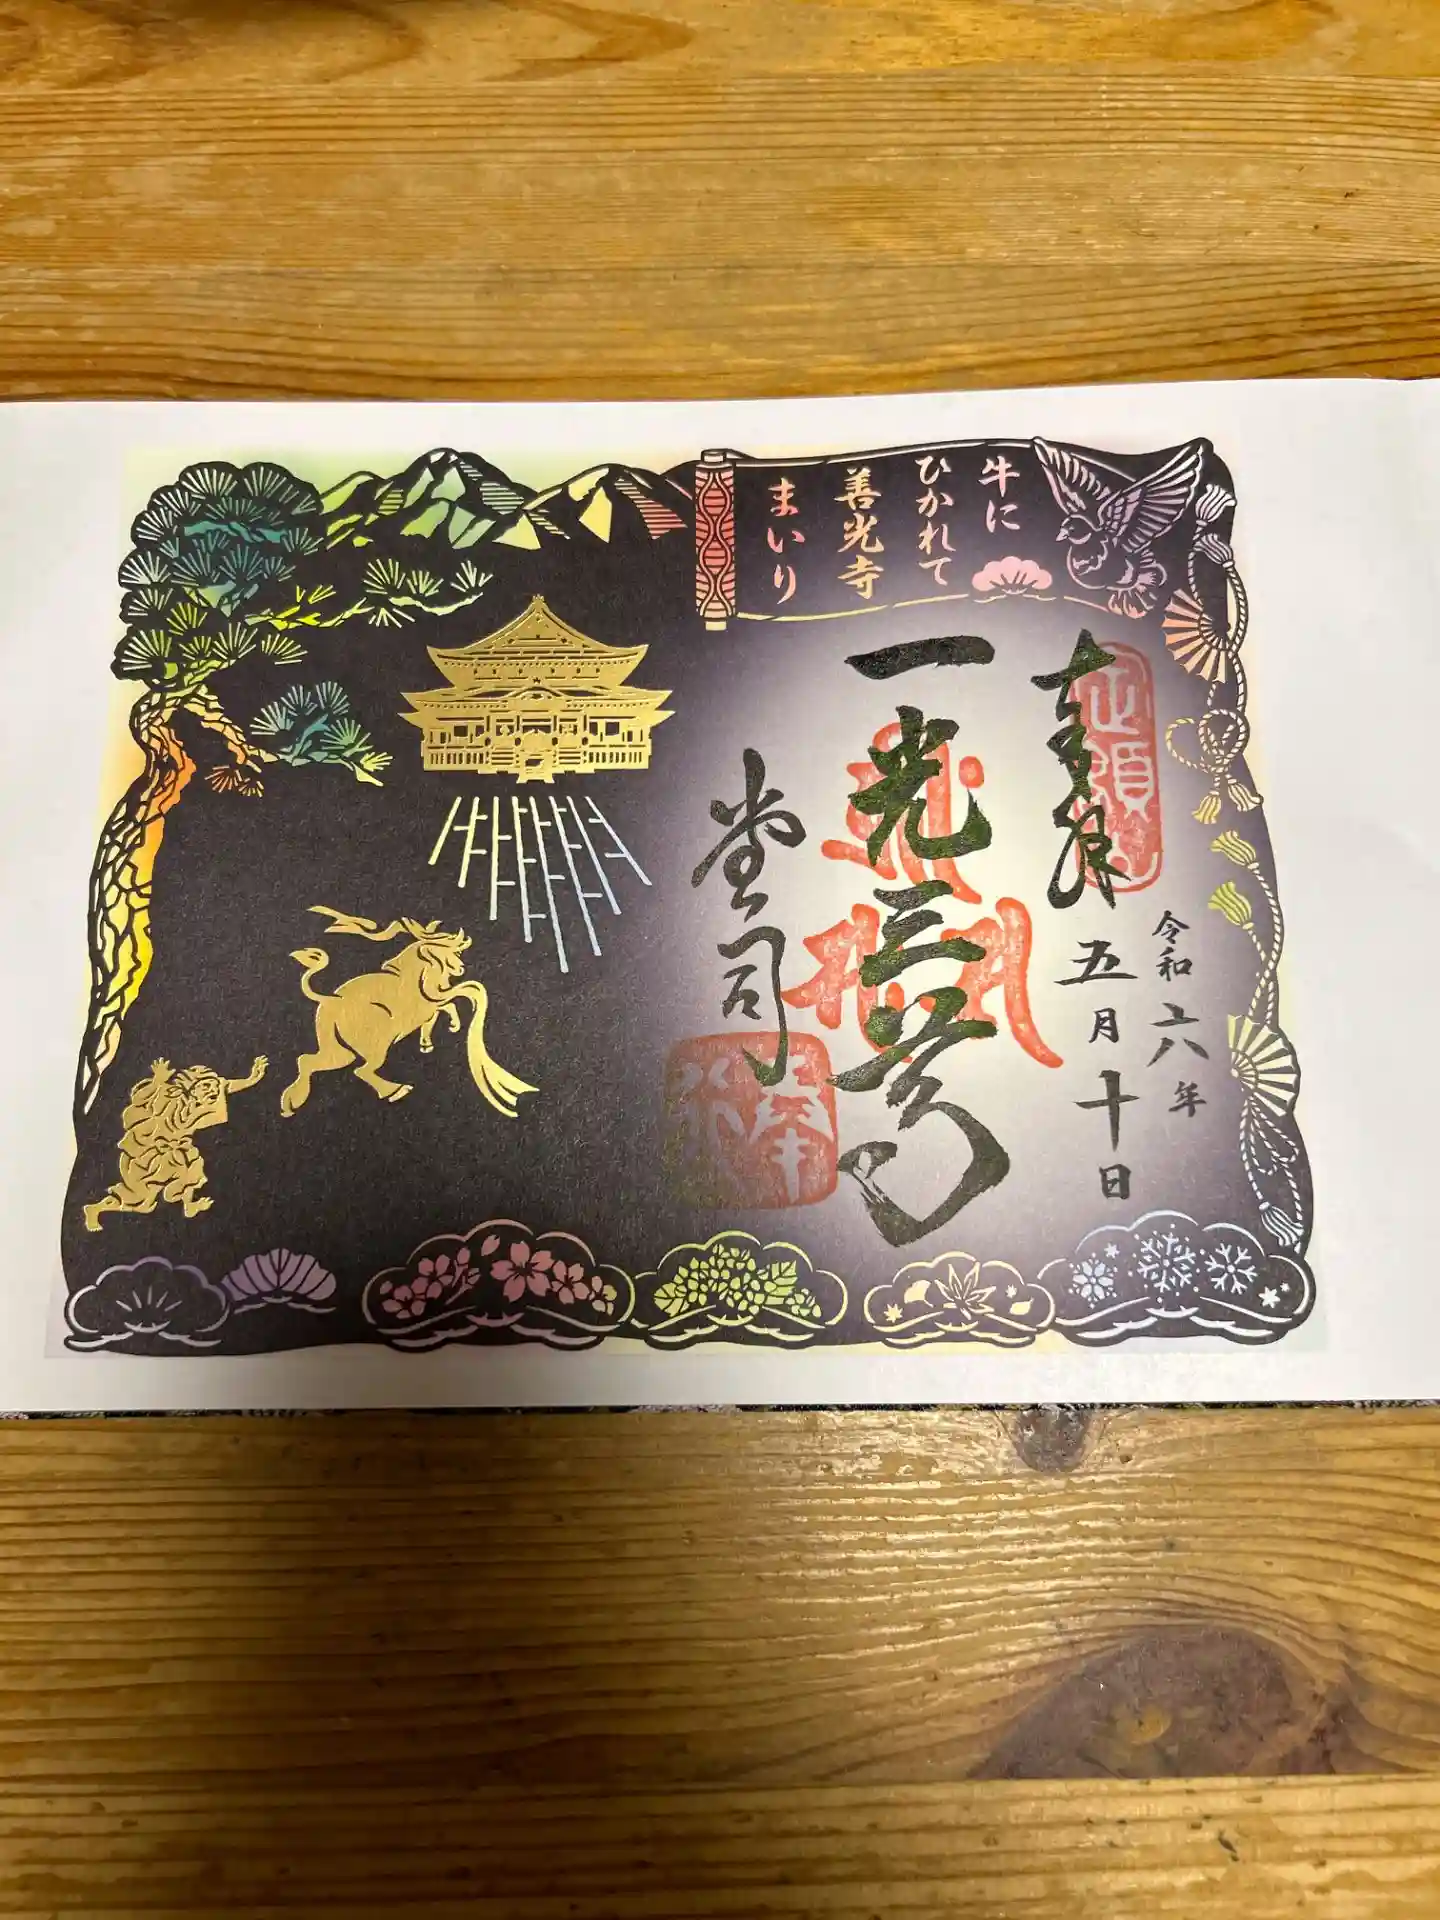 牛に
ひかれて
善光寺
まいり
奉拝
令和六年
五月十日
一光三尊
堂司